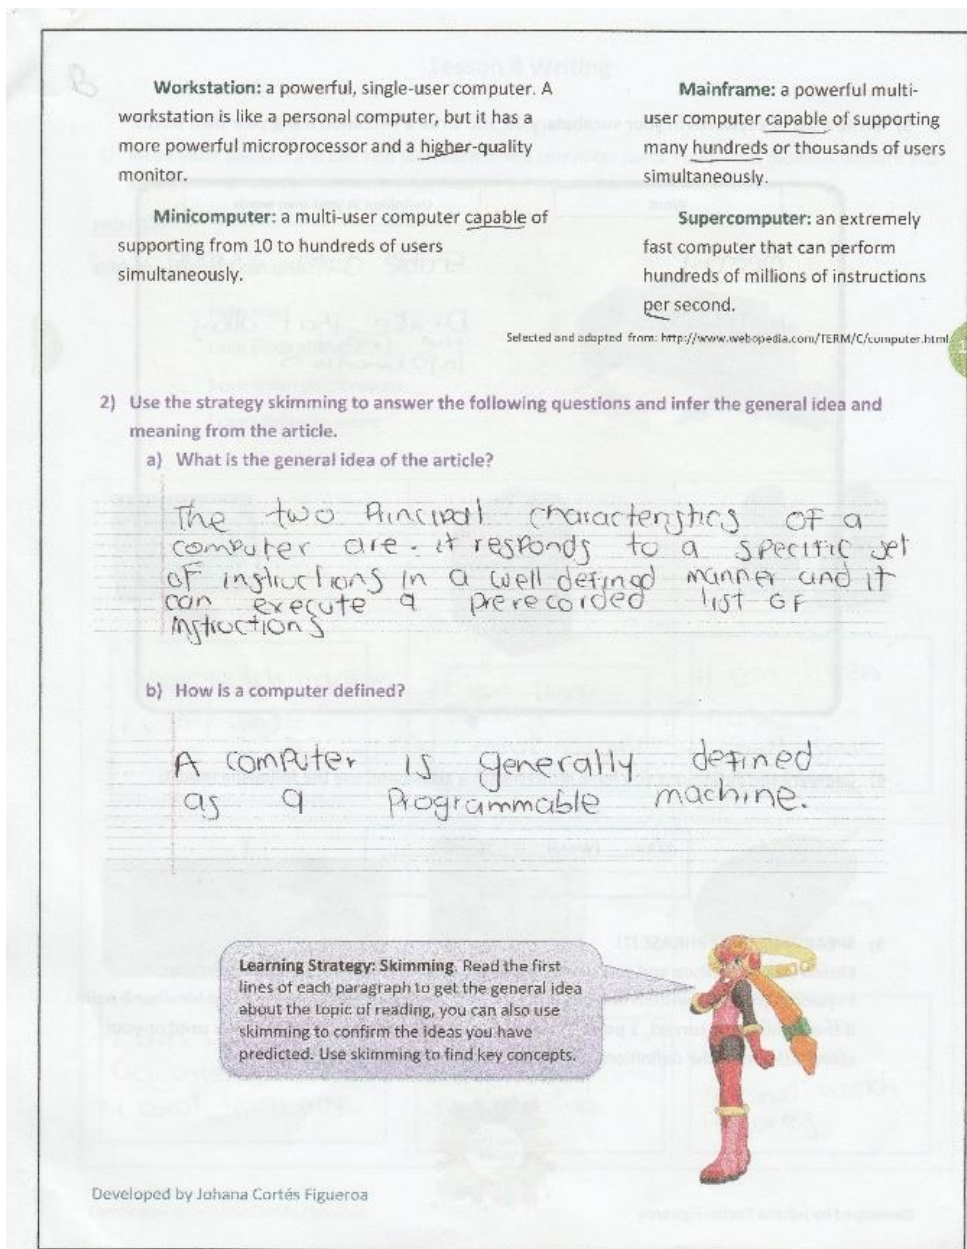 Workstation: a powerful, single-user computer. A
workstation is like a personal computer, but it has a
more powerful microprocessor and a higher-quality
monitor.
Minicomputer: a multi-user computer capable of
supporting from 10 to hundreds of users
simultaneously.
Mainframe: a powerful multi-
user computer capable of supporting
many hundreds or thousands of users
simultaneously.
Supercomputer: an extremely
fast computer that can perform
hundreds of millions of instructions
per second.
Selected and adapted from: http://www.webopedia.com/TERM/C/computer.html
1
2) Use the strategy skimming to answer the following questions and infer the general idea and
meaning from the article.
a) What is the general idea of the article?
The two Principal characteristics of a
computer are. it responds to a specific set
of instructions in a well defined manner and it
can execute a prerecorded list of
instructions
b) How is a computer defined?
A computer is generally defined
as a Programmable machine.
Learning Strategy: Skimming. Read the first
lines of each paragraph to get the general idea
about the topic of reading, you can also use
skimming to confirm the ideas you have
predicted. Use skimming to find key concepts.
Developed by Johana Cortés Figueroa